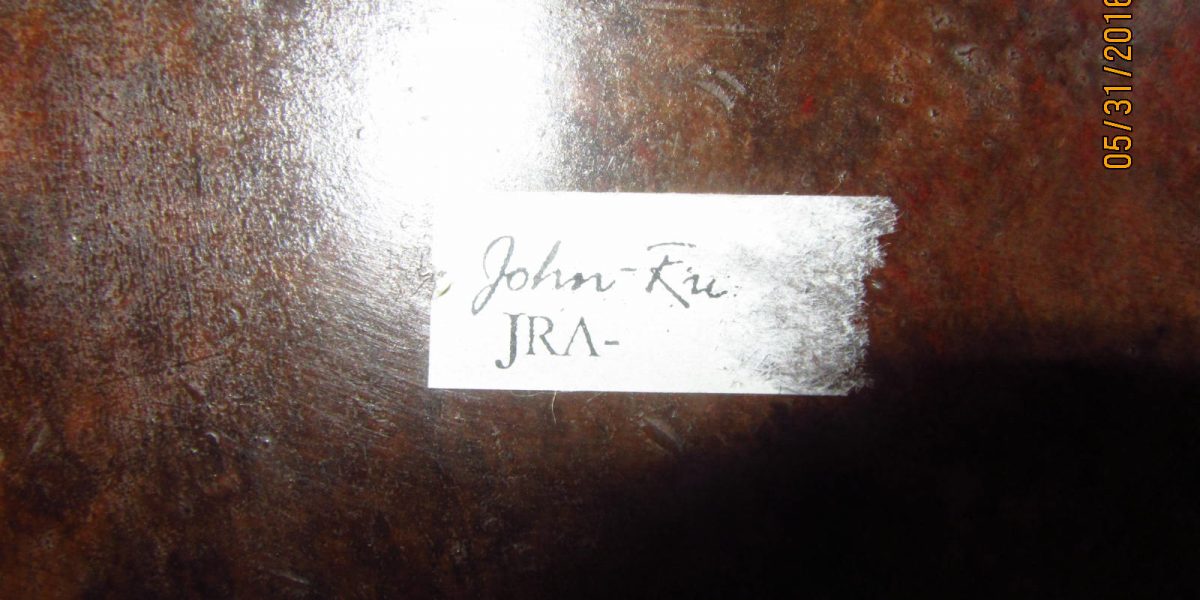 John-Ri
JRA-
05/31/2016